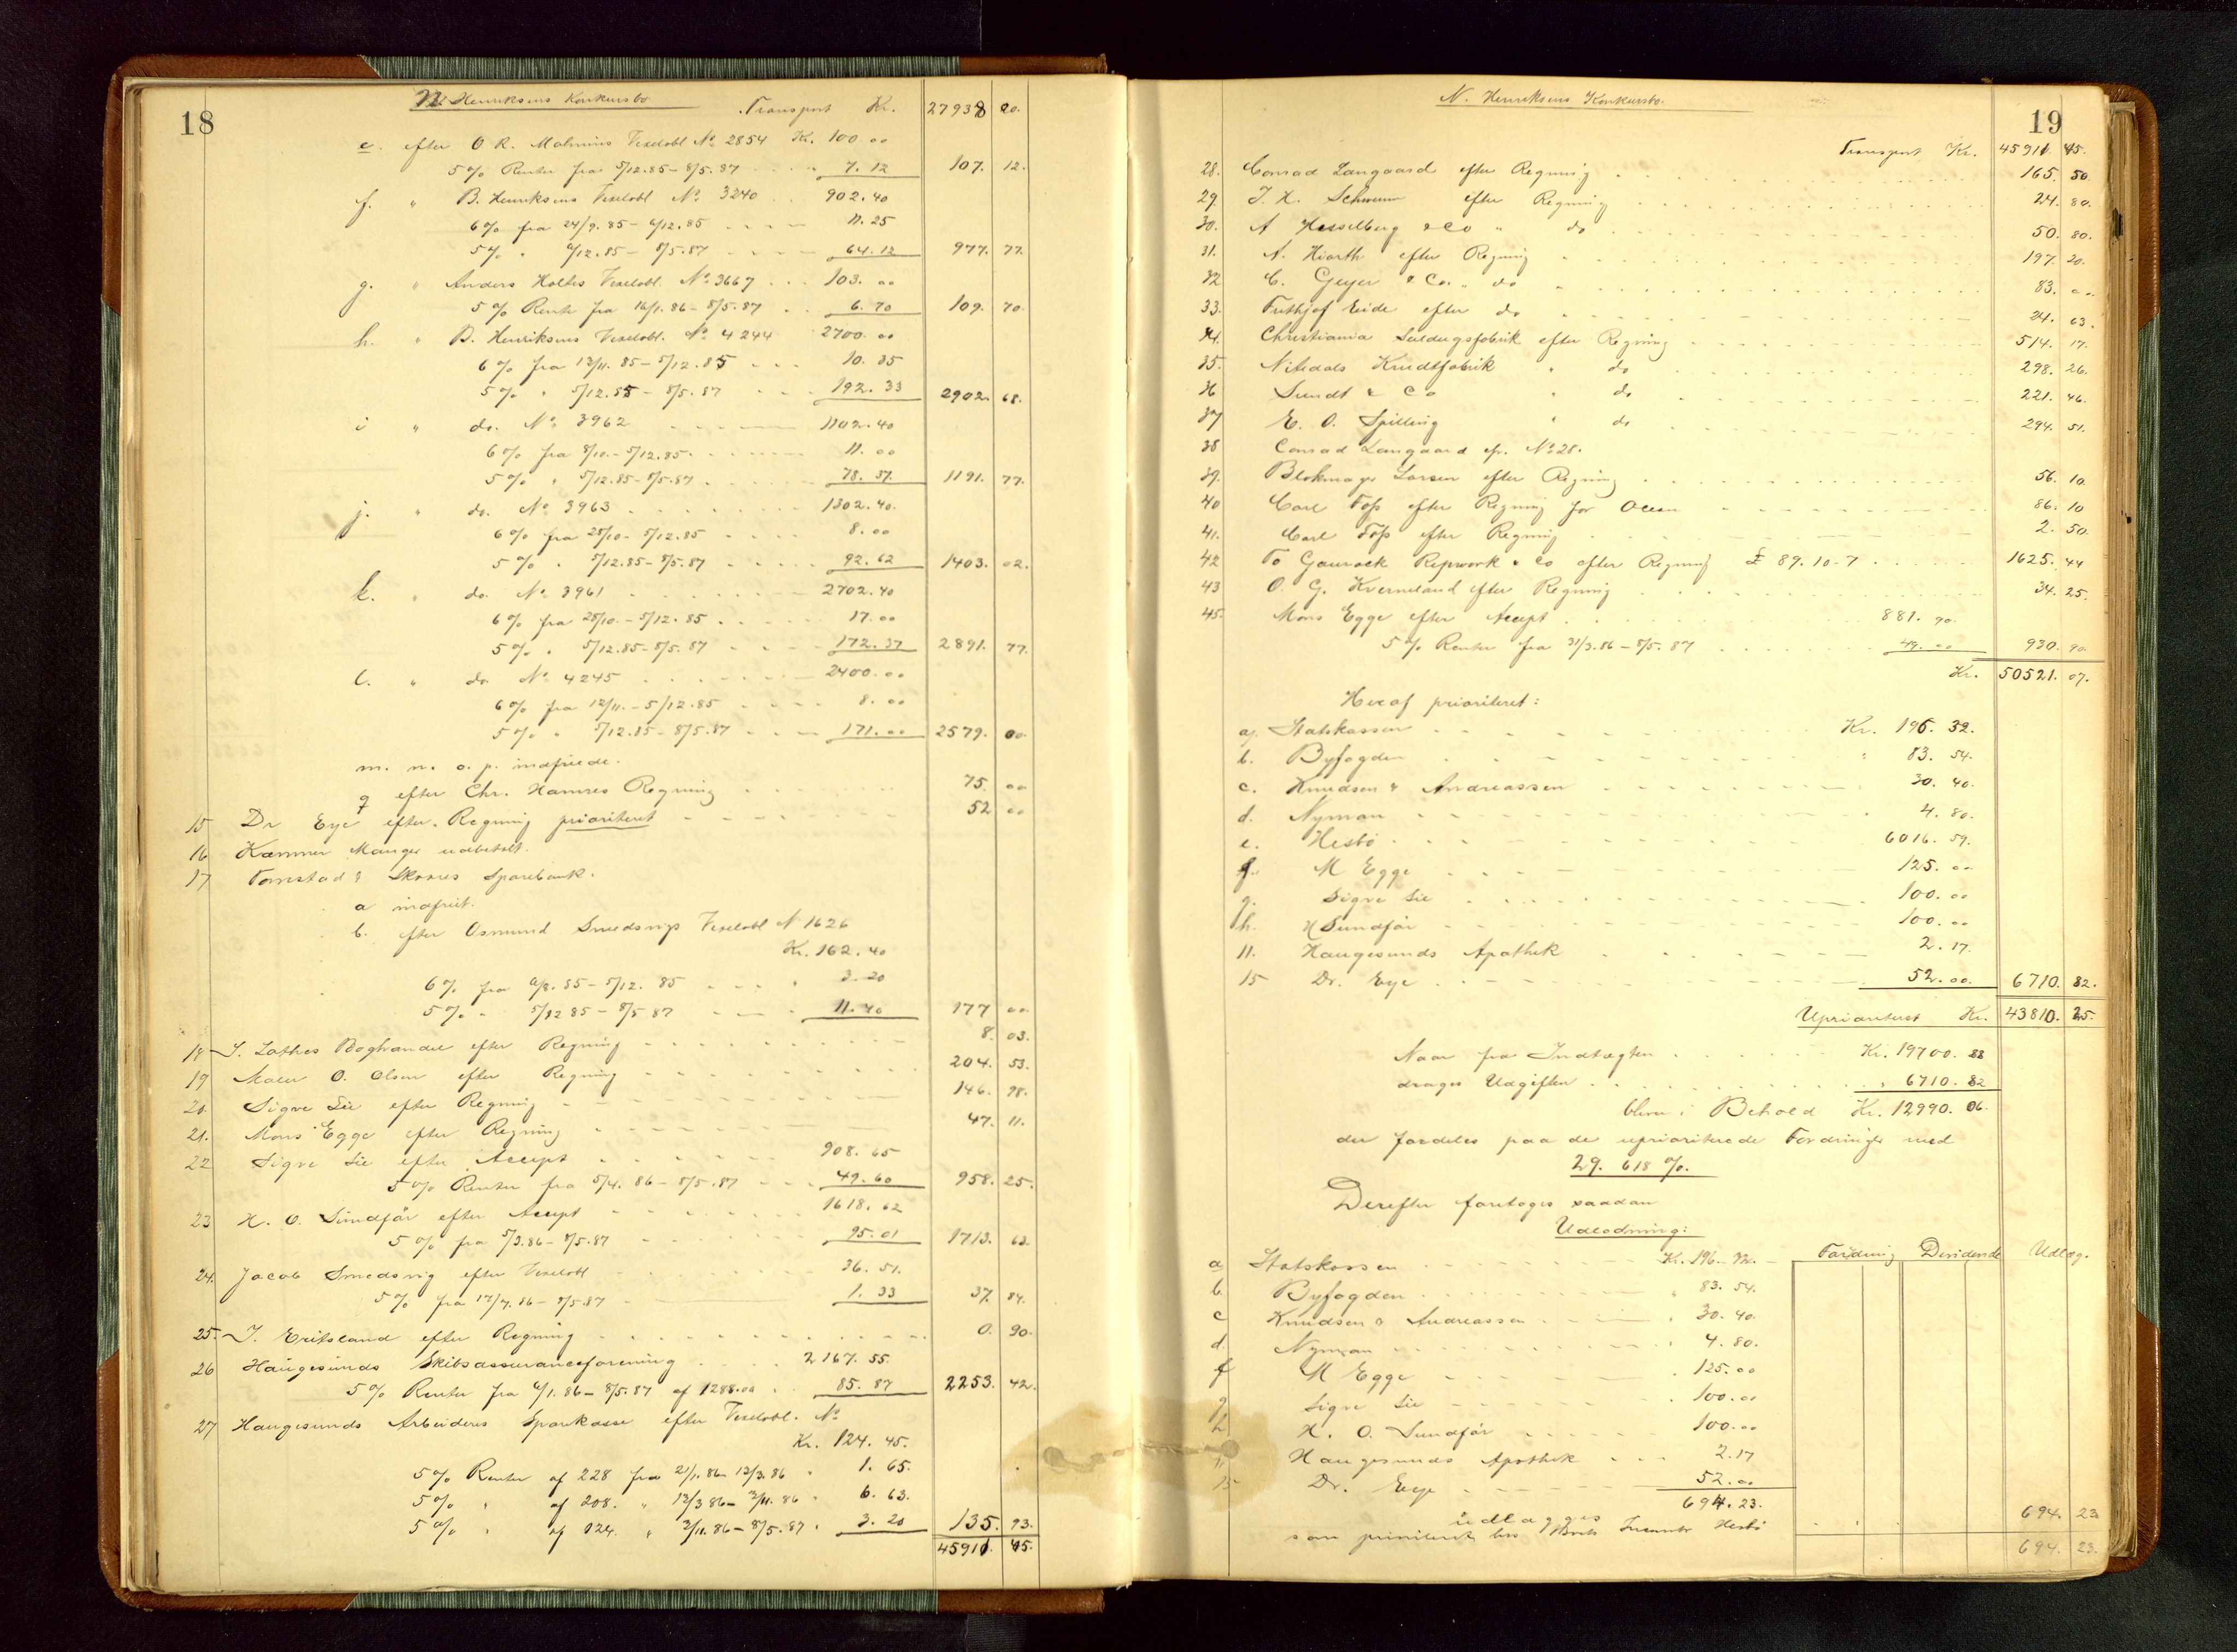 18
N. Henriksens Konkursbo
Transport Kr. 27938 20.
e. efter O R. Malmins Vexelobl No 2854 Kr. 100.00
5% Renter fra 5/12.85 - 8/5.87 7.12 107. 12.
f. " B. Henriksens Vexelobl No 3240 902.40
6% fra 24/9.85 - 5/12.85 11.25
5% " 5/12.85 - 8/5.87 64.12 977. 77.
g. " Anders Holtes Vexelobl. No 3667 103.00
5% Rente fra 16/1.86 - 8/5.87 6.70 109. 70.
h. " B. Henriksens Vexelobl. No 4244 2700.00
6% fra 13/11.85 - 5/12.85 10.35
5% " 5/12.85 - 8/5.87 192.33 2902. 68.
i " do. No 3962 1102.40
6% fra 8/10. - 5/12.85. 11.00
5% " 5/12.85 - 8/5.87 78.37. 1191. 77.
j. " do. No 3963 1302.40.
6% fra 28/10 - 5/12.85 8.00
5% " 5/12.85 - 8/5.87 92.62 1403. 02.
k. " do. No 3961 2702.40
6% fra 28/10. - 5/12.85 17.00
5% " 5/12.85 - 8/5.87 172.37 2891. 77.
l. " do No 4245 2400.00
6% fra 12/11. - 5/12.85 8.00
5% " 5/12.85 - 8/5.87 171.00 2579. 00.
m. n. o. p. indfriede.
q efter Chr. Hamres Regning 75. 00
15 Dr Eye efter Regning prioriteret 52 00
16 Kæmner Manger udbetalt.
17 Tornstad & Skaares Sparebank.
a indfriet.
b. efter Osmund Smedsvigs Vexelobl No 1626
Kr. 162.40
6% fra 6/8.85 - 5/12.85 3.20
5% " 5/12 85 - 8/5 87 11.40 177 00
18 J. Lothes Boghandel efter Regning 8. 03.
19 Maler O. Olsen efter Regning 204. 53.
20. Sigve Lie efter Regning 146. 98.
21. Mons Egge efter Regning 47. 11.
22 Sigve Lie efter Accept 908.65
5% Renter fra 5/4.86 - 8/5.87 49.60 958. 25.
23 H. O. Sundför efter Accept 1618.62
5% fra 5/3.86 - 8/5.87 95.01 1713. 63.
24. Jacob Smedsvig efter Vexelobl 36.51.
5% fra 17/7.86 - 8/5.87 1.33 37. 84.
25. J. Eritsland efter Regning 0. 90.
26 Haugesunds Skibsassuranceforening 2167.55.
5% Renter fra 6/1.86 - 8/5.87 af 1288.00 85.87 2253. 42.
27 Haugesunds Arbeideres Sparekasse efter Vexelobl. No
Kr. 124.45.
5% Renter af 228 fra 21/1.86 - 13/3.86 " 1.65.
5% " af 208. " 13/3 86 - 2/11.86 " 6.63.
5% " af 124. " 2/11.86 - 8/5.87 " 3.20 135. 93.
45911. 45.
19
N. Henriksens Konkursbo.
Transport Kr. 45911. 45.
28. Conrad Langaard efter Regning 165. 50.
29. J. H. Schwenn efter Regning 24. 80.
30. A Hesselberg & Co " do 50. 80.
31. A. Hiorth efter Regning 197. 20.
32 C. Geijer & Co. " do 83. 00.
33. Frithjof Eide efter do 24. 63.
34. Christiania Seildugsfabrik efter Regning 514. 17.
35. Nitedals Krudtfabrik " do 298. 26.
36 Sundt & Co " do 221. 46.
37 E. O. Spilling " do 294. 51.
38 Conrad Langaard cfr. No 28.
39. Blokmager Larsen efter Regning 56. 10.
40 Carl Foss efter Regning for Ocean 86. 10
41. Carl Foss efter Regning 2. 50.
42 To Gourock Ropework & Co efter Regning £ 89.10-7 1625. 44
43 O. G. Kverneland efter Regning 34. 25.
45. Mons Egge efter Accept 881.90.
5% Renter fra 31/3.86 - 8/5.87 49.00 930. 90.
Kr. 50521. 07.
Heraf prioriteret:
a. Statskassen Kr. 196. 32.
b. Byfogden " 83. 54.
c. Knudsen & Andreassen 30. 40.
d. Nyman 4. 80.
e. Hesbø 6016. 59.
f. M Egge 125. 00
g. Sigve Lie 100. 00
h. H Sundför 100. 00
11. Haugesunds Apothek 2. 17.
15 Dr. Eye 52. 00. 6710. 82.
Uprioriteret Kr. 43810. 25.
Naar fra Indtægten Kr. 19700. 88
drages Udgiften " 6710. 82
bliver i Behold Kr. 12990. 06.
der fordeles paa de uprioriterede Fordringer med
29. 618 %.
Derefter foretages saadan
Udlodning:
Fordring Dividende Udlæg.
a Statskassen Kr. 196. 32.
b. Byfogden " 83. 54.
c Knudsen & Andreassen " 30. 40.
d. Nyman " 4. 80.
f M Egge " 125. 00
g Sigve Lie " 100. 00
h H. O. Sundför 100. 00
11. Haugesunds Apothek 2. 17
15 Dr. Eye 52. 00
694. 23.
udlægges
som prioriteret hos Boets Hesbø 694. 23
694. 23.